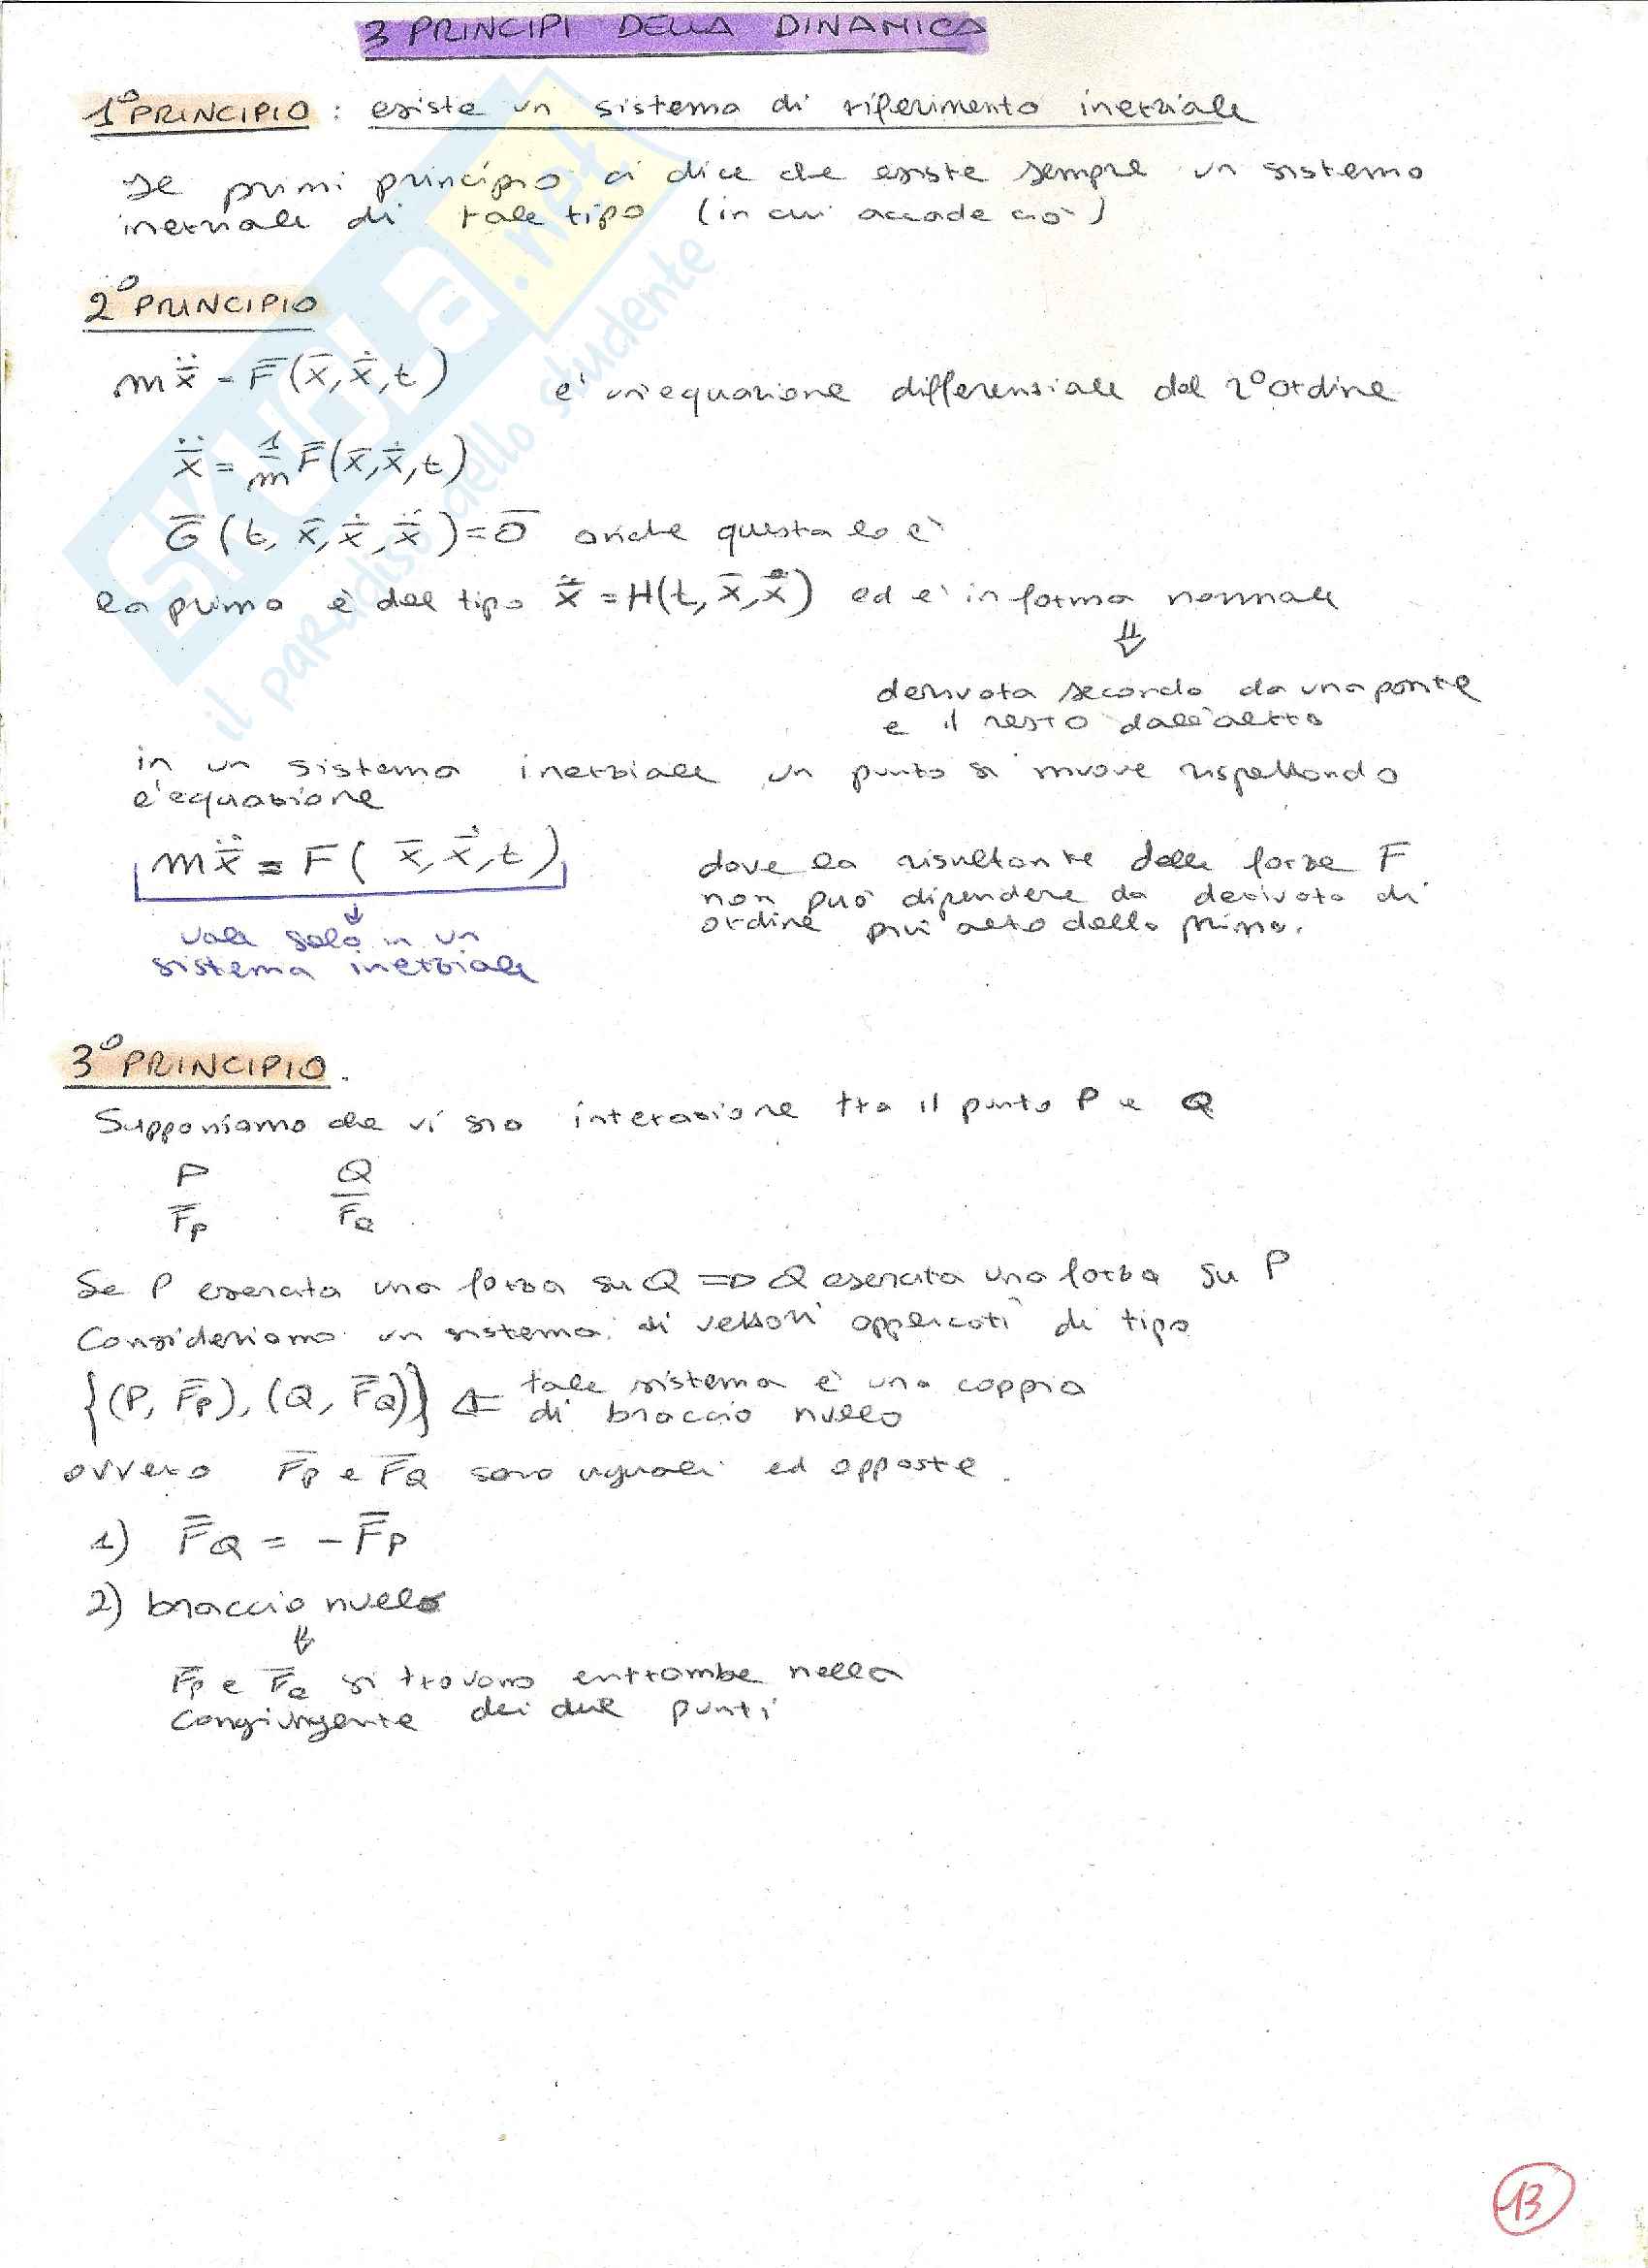 3 PRINCIPI DELLA DINAMICA
1° PRINCIPIO : esiste un sistema di riferimento inerziale
Il primi principio ci dice che esiste sempre un sistema
inerziale di tale tipo (in cui accade ciò)
2° PRINCIPIO
mẍ = F̄(x̄, ẋ, t) è un'equazione differenziale del 2° ordine
ẍ = 1/m F̄(x̄, ẋ, t)
Ḡ(t, x̄, ẋ, ẍ) = ō anche questa lo è
la prima è del tipo ẍ = H(t, x̄, ẋ) ed è in forma normale
⇓
derivata seconda da una parte
e il resto dall'altra
in un sistema inerziale un punto si muove rispettando
l'equazione
mẍ = F(x̄, ẋ, t)
dove la risultante delle forze F
non può dipendere da derivata di
ordine più alto della prima.
vale solo in un
sistema inerziale
3° PRINCIPIO.
Supponiamo che vi sia interazione tra il punto P e Q
P Q
F̄p F̄Q
Se P esercita una forza su Q ⇒ Q esercita una forza su P
Consideriamo un sistema di vettori applicati di tipo
{(P, F̄p), (Q, F̄Q)} ⇐ tale sistema è una coppia
di braccio nullo
ovvero F̄p e F̄Q sono uguali ed opposte.
1) F̄Q = - F̄p
2) braccio nullo
⇓
F̄p e F̄Q si trovano entrambe nella
congiungente dei due punti
13
SKUOLA.net
il paradiso dello studente